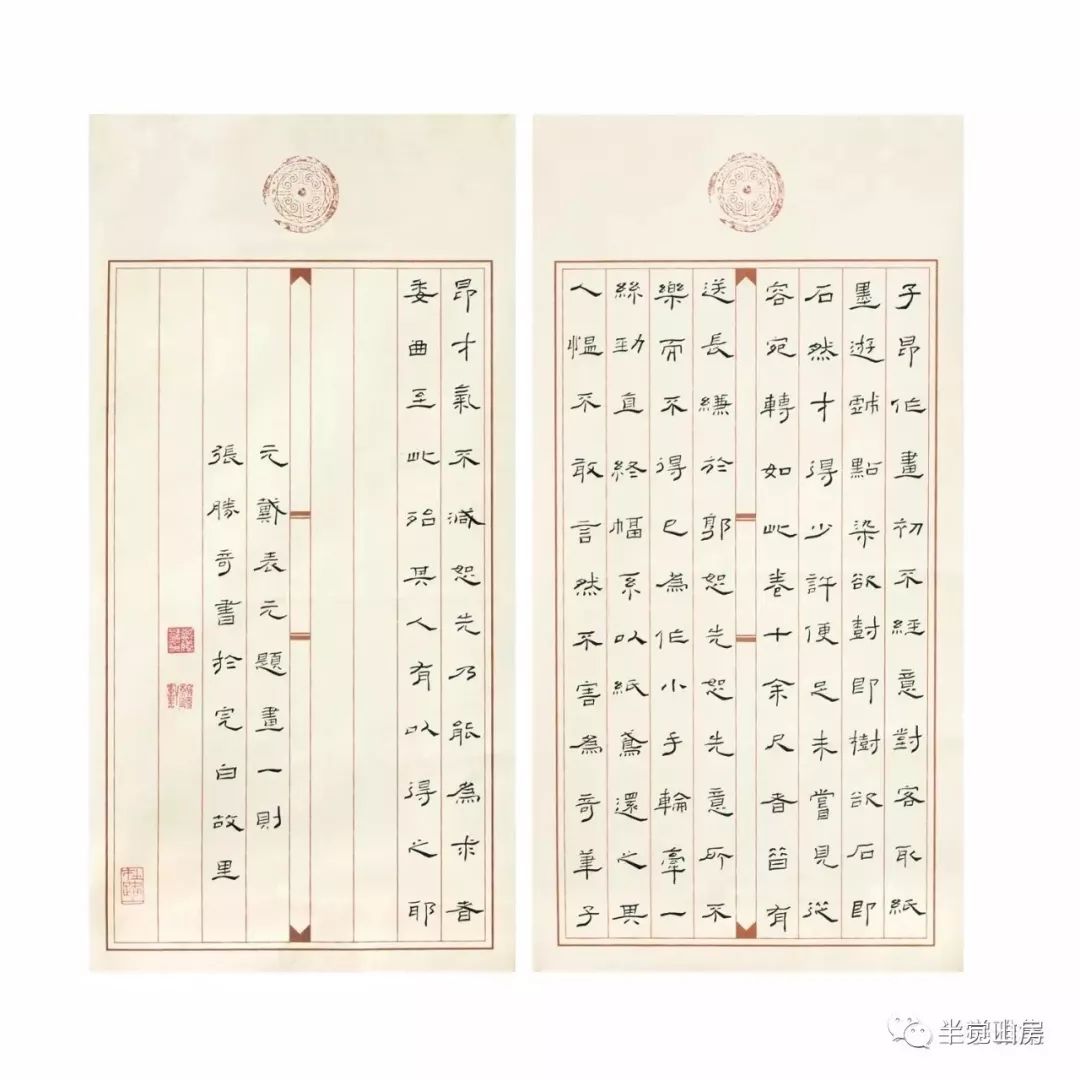 子昂作畫初不經意對客取紙
墨遊戲點染欲尌即樹欲石即
石然才得少許便足未嘗見從
容宛轉如此卷十余尺者昔有
送長縑於郭恕先恕先意所不
樂而不得已為作小手輪牽一
絲勁直終幅系以紙鳶還之其
人慍不敢言然不害為奇筆子
昂才氣不減恕先乃能為求者
委曲至此殆其人有以得之耶
元戴表元題畫一則
張勝奇書於完白故里
半觉山房